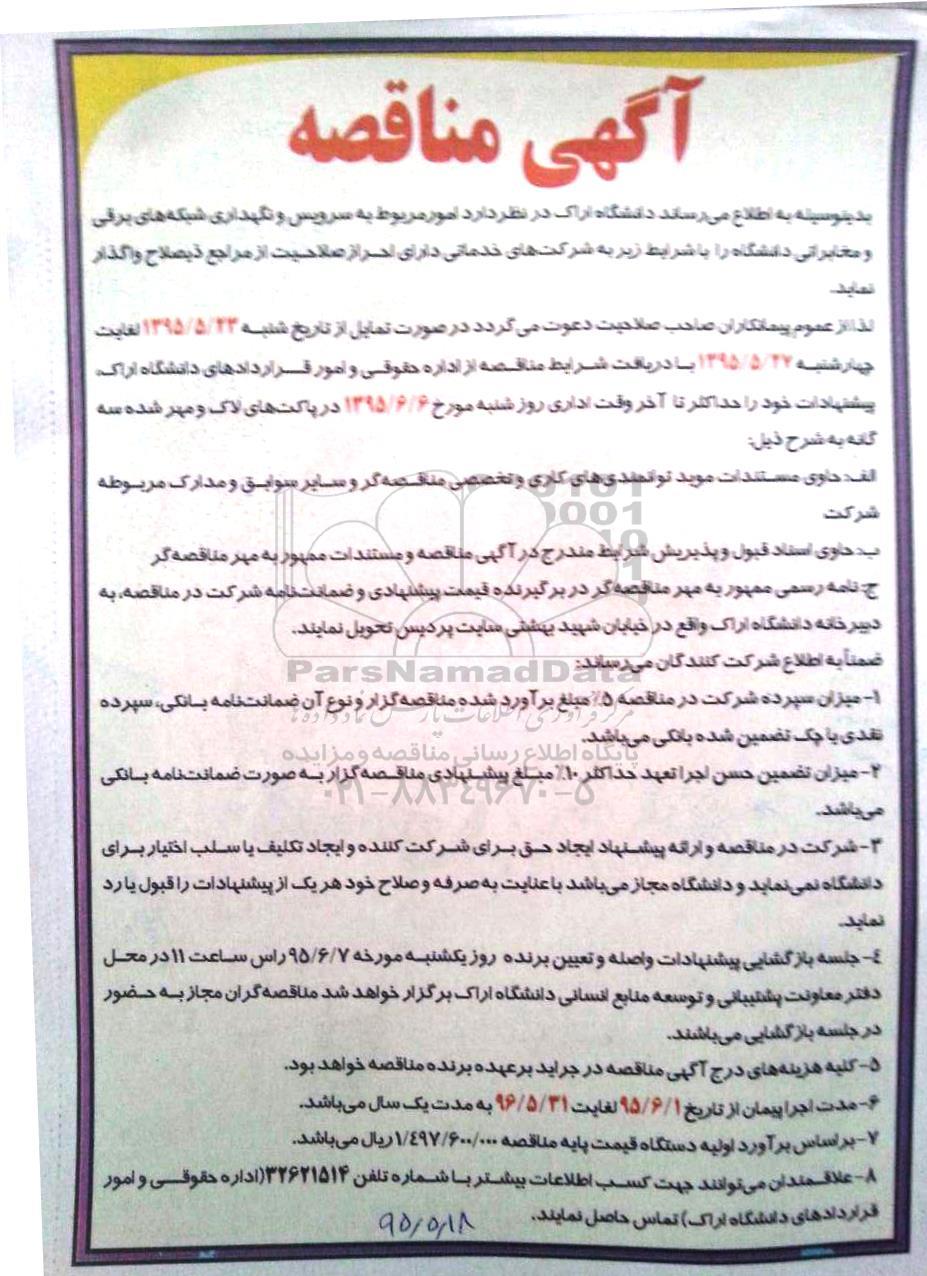 آگهی مناقصه
بدینوسیله به اطلاع می‌رساند دانشگاه اراک در نظر دارد امور مربوط به سرویس و نگهداری شبکه‌های برقی
و مخابراتی دانشگاه را با شرایط زیر به شرکت‌های خدماتی دارای احراز صلاحیت از مراجع ذیصلاح واگذار
نماید.
لذا از عموم پیمانکاران صاحب صلاحیت دعوت می‌گردد در صورت تمایل از تاریخ شنبه ۱۳۹۵/۵/۲۳ لغایت
چهارشنبه ۱۳۹۵/۵/۲۷ با دریافت شرایط مناقصه از اداره حقوقی و امور قراردادهای دانشگاه اراک،
پیشنهادات خود را حداکثر تا آخر وقت اداری روز شنبه مورخ ۱۳۹۵/۶/۶ در پاکت‌های لاک و مهر شده سه
گانه به شرح ذیل:
الف: حاوی مستندات موید توانمندی‌های کاری و تخصصی مناقصه‌گر و سایر سوابق و مدارک مربوطه
شرکت
ب: حاوی اسناد قبول و پذیریش شرایط مندرج در آگهی مناقصه و مستندات ممهور به مهر مناقصه‌گر
ج: نامه رسمی ممهور به مهر مناقصه‌گر در برگیرنده قیمت پیشنهادی و ضمانت‌نامه شرکت در مناقصه، به
دبیرخانه دانشگاه اراک واقع در خیابان شهید بهشتی سایت پردیس تحویل نمایند.
ضمناً به اطلاع شرکت کنندگان می‌رساند:
ParsNamadData
۱- میزان سپرده شرکت در مناقصه ۵٪ مبلغ برآورد شده مناقصه‌گزار و نوع آن ضمانت‌نامه بانکی، سپرده
مرکز فرآوری اطلاعات پارس نماد داده ها
نقدی یا چک تضمین شده بانکی می‌باشد.
پایگاه اطلاع رسانی مناقصه و مزایده
۲- میزان تضمین حسن اجرا تعهد حداکثر ۱۰٪ مبلغ پیشنهادی مناقصه‌گزار به صورت ضمانت‌نامه بانکی
۰۲۱-۸۸۳۴۹۶۷۰-۵
می‌باشد.
۳- شرکت در مناقصه و ارائه پیشنهاد ایجاد حق برای شرکت کننده و ایجاد تکلیف یا سلب اختیار برای
دانشگاه نمی‌نماید و دانشگاه مجاز می‌باشد با عنایت به صرفه و صلاح خود هر یک از پیشنهادات را قبول یا رد
نماید.
۴- جلسه بازگشایی پیشنهادات واصله و تعیین برنده روز یکشنبه مورخه ۹۵/۶/۷ راس ساعت ۱۱ در محل
دفتر معاونت پشتیبانی و توسعه منابع انسانی دانشگاه اراک برگزار خواهد شد مناقصه‌گران مجاز به حضور
در جلسه بازگشایی می‌باشند.
۵- کلیه هزینه‌های درج آگهی مناقصه در جراید برعهده برنده مناقصه خواهد بود.
۶- مدت اجرا پیمان از تاریخ ۹۵/۶/۱ لغایت ۹۶/۵/۳۱ به مدت یک سال می‌باشد.
۷- براساس برآورد اولیه دستگاه قیمت پایه مناقصه ۱/۴۹۷/۶۰۰/۰۰۰ ریال می‌باشد.
۸- علاقمندان می‌توانند جهت کسب اطلاعات بیشتر با شماره تلفن ۳۲۶۲۱۵۱۴ (اداره حقوقی و امور
قراردادهای دانشگاه اراک) تماس حاصل نمایند.
۹۵/۵/۱۸